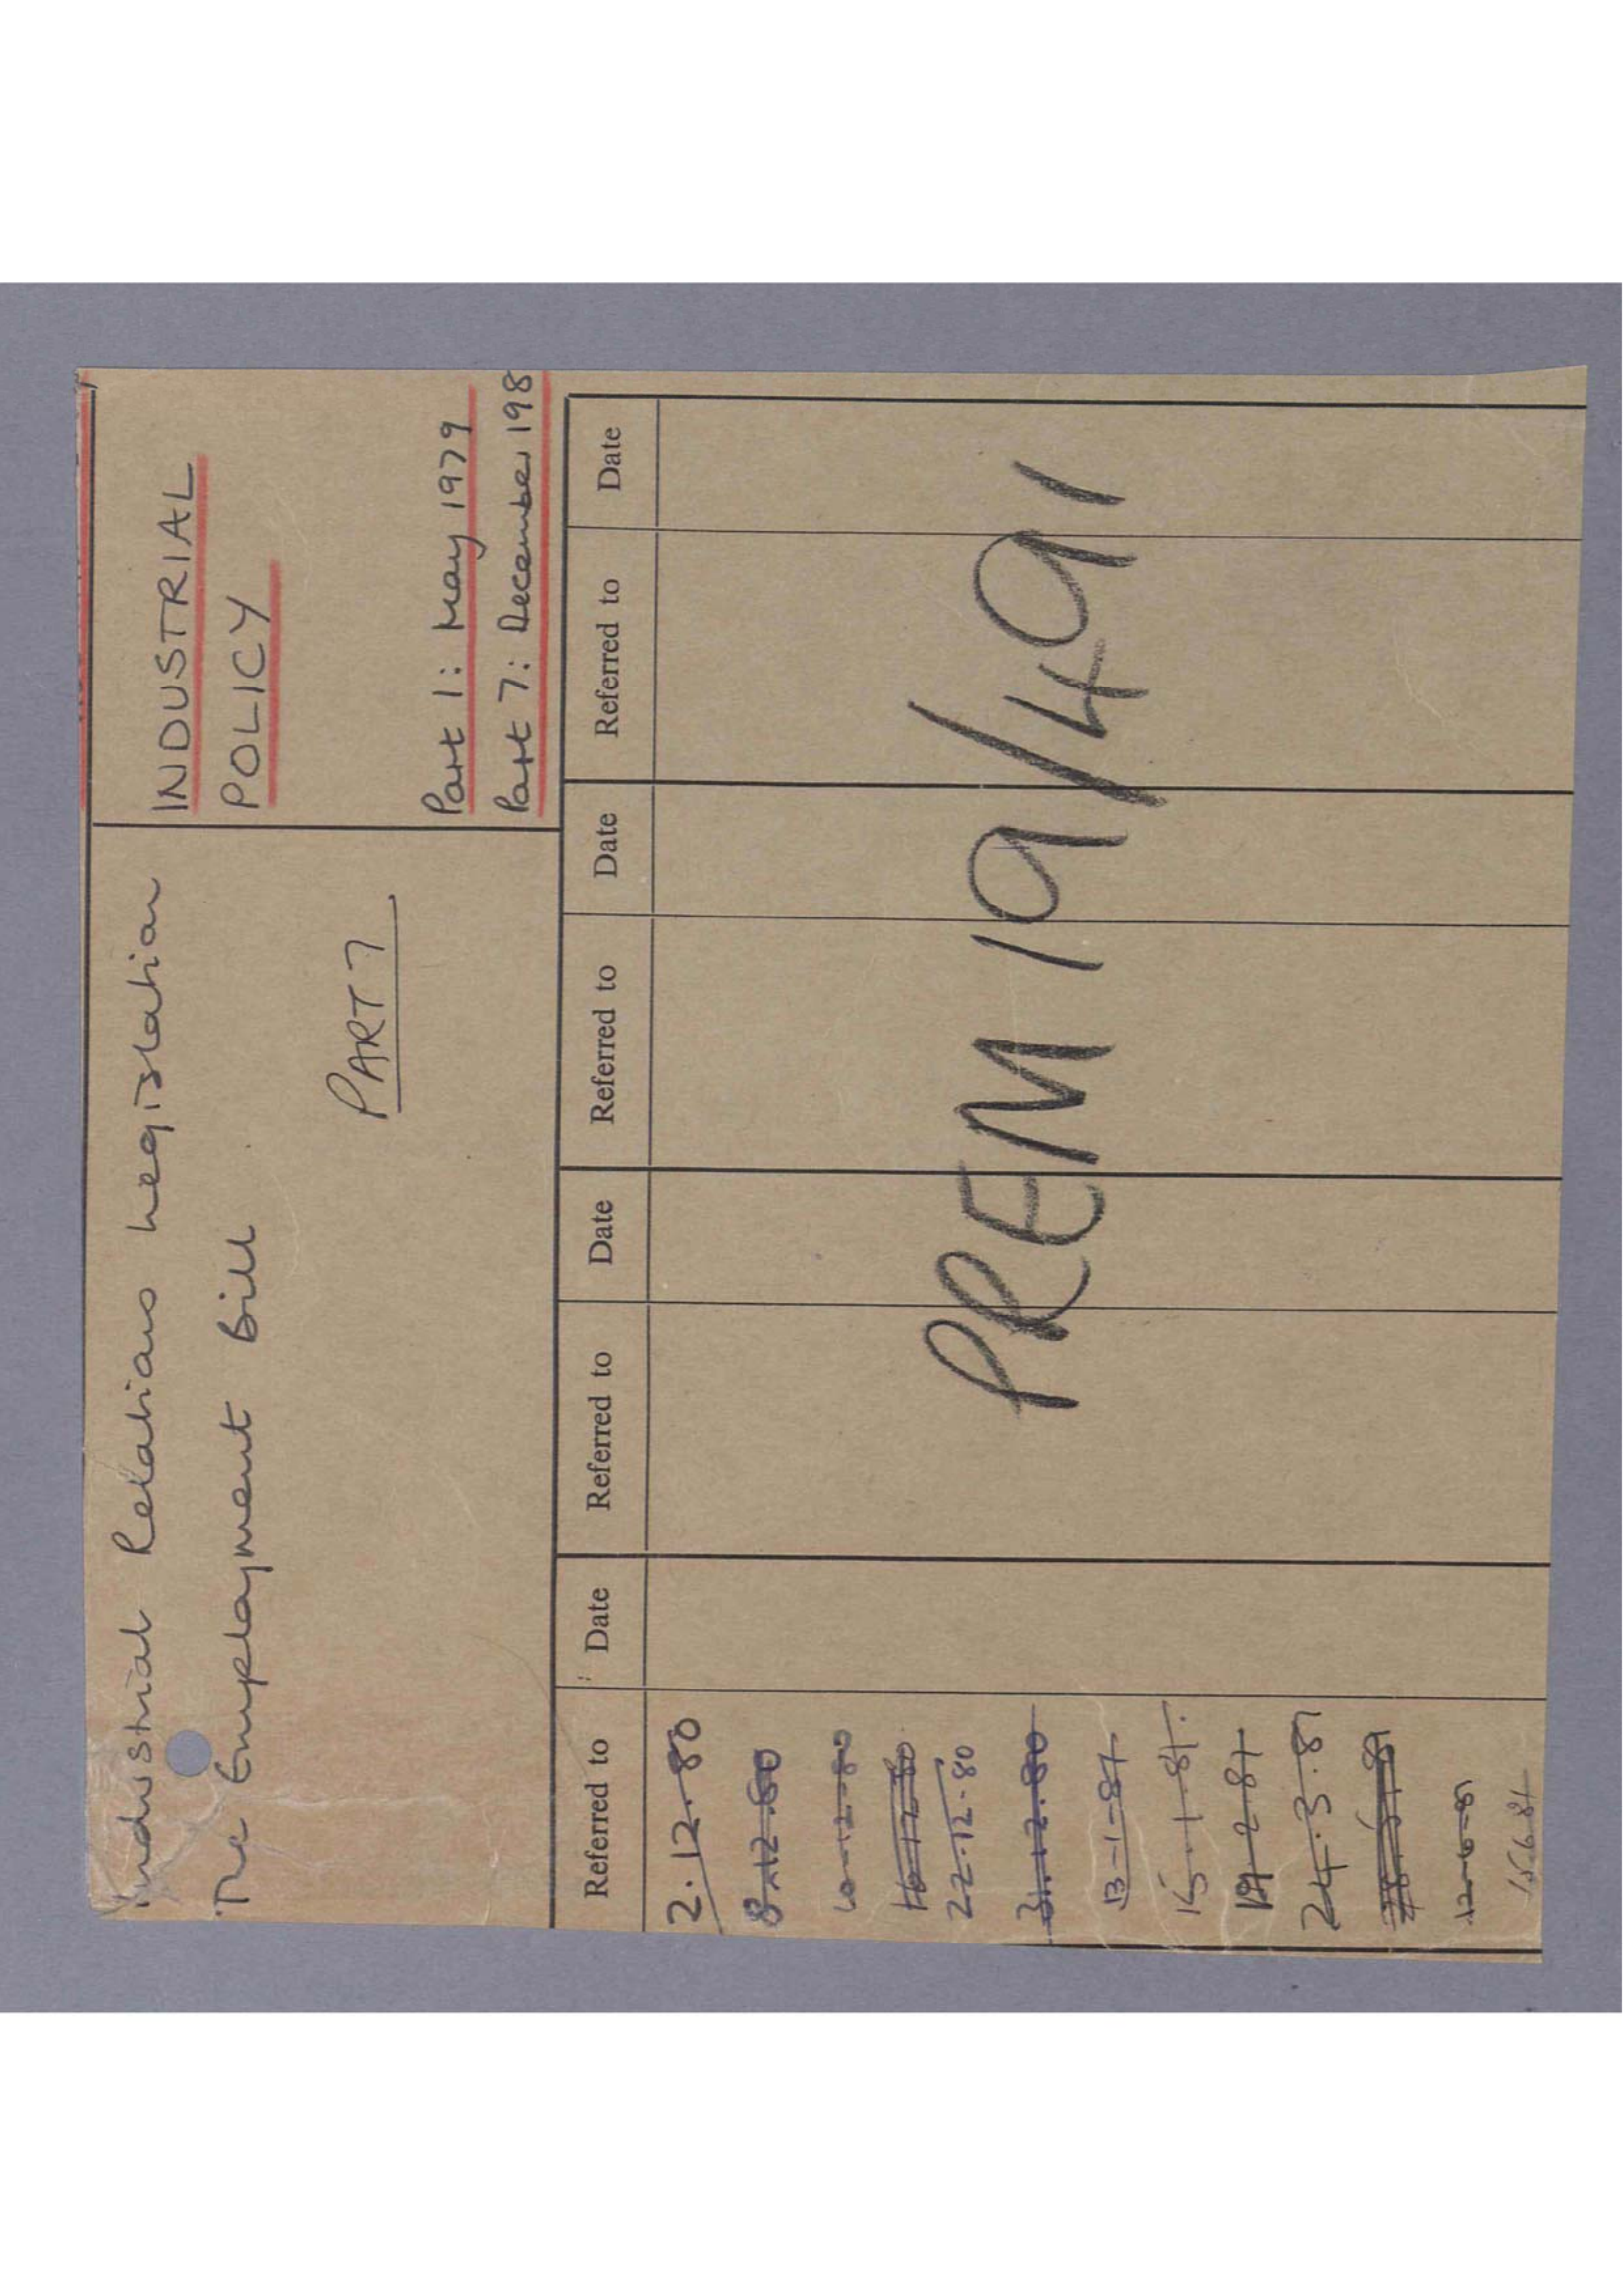 Industrial Relations Legislation
The Employment Bill
PART 7
INDUSTRIAL
POLICY
Part 1: May 1979
Part 7: December 198
Referred to Date Referred to Date Referred to Date Referred to Date
2.12.80
8.12.80
10-12-80
16.12.80
22.12.80
31.12.80
13-1-81
15.1.81.
19-2-81
24.3.81
12-6-81
15.6.81
PREM 19/491